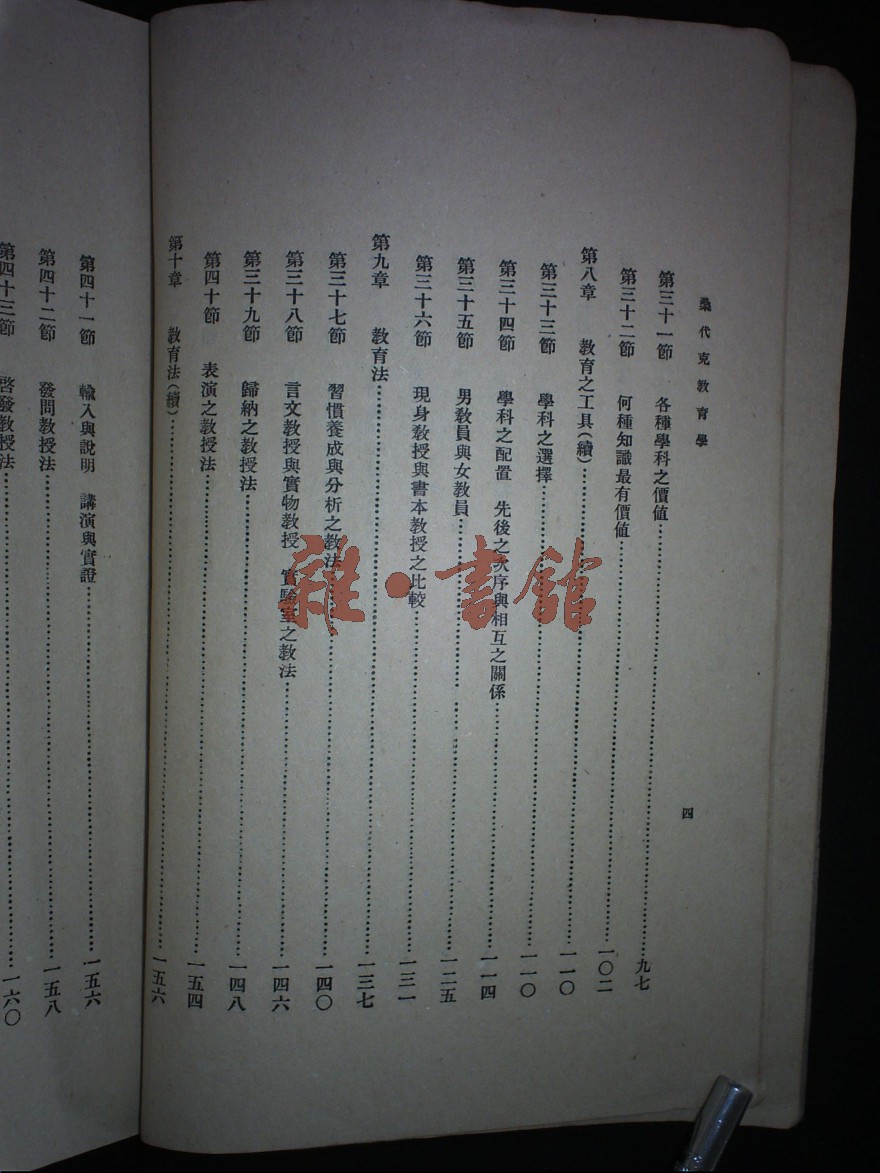 桑代克教育學
四
第三十一節 各種學科之價值……九七
第三十二節 何種知識最有價值……一〇二
第八章 教育之工具(續)……一一〇
第三十三節 學科之選擇……一一〇
第三十四節 學科之配置 先後之次序與相互之關係……一一四
第三十五節 男教員與女教員……一二五
第三十六節 現身教授與書本教授之比較……一三一
第九章 教育法……一三七
第三十七節 習慣養成與分析之教法……一四〇
第三十八節 言文教授與實物教授 實驗室之教法……一四六
第三十九節 歸納之教授法……一四八
第四十節 表演之教授法……一五四
第十章 教育法(續)……一五六
第四十一節 輸入與說明 講演與實證……一五六
第四十二節 發問教授法……一五八
第四十三節 啓發教授法……一六〇
雜·書館